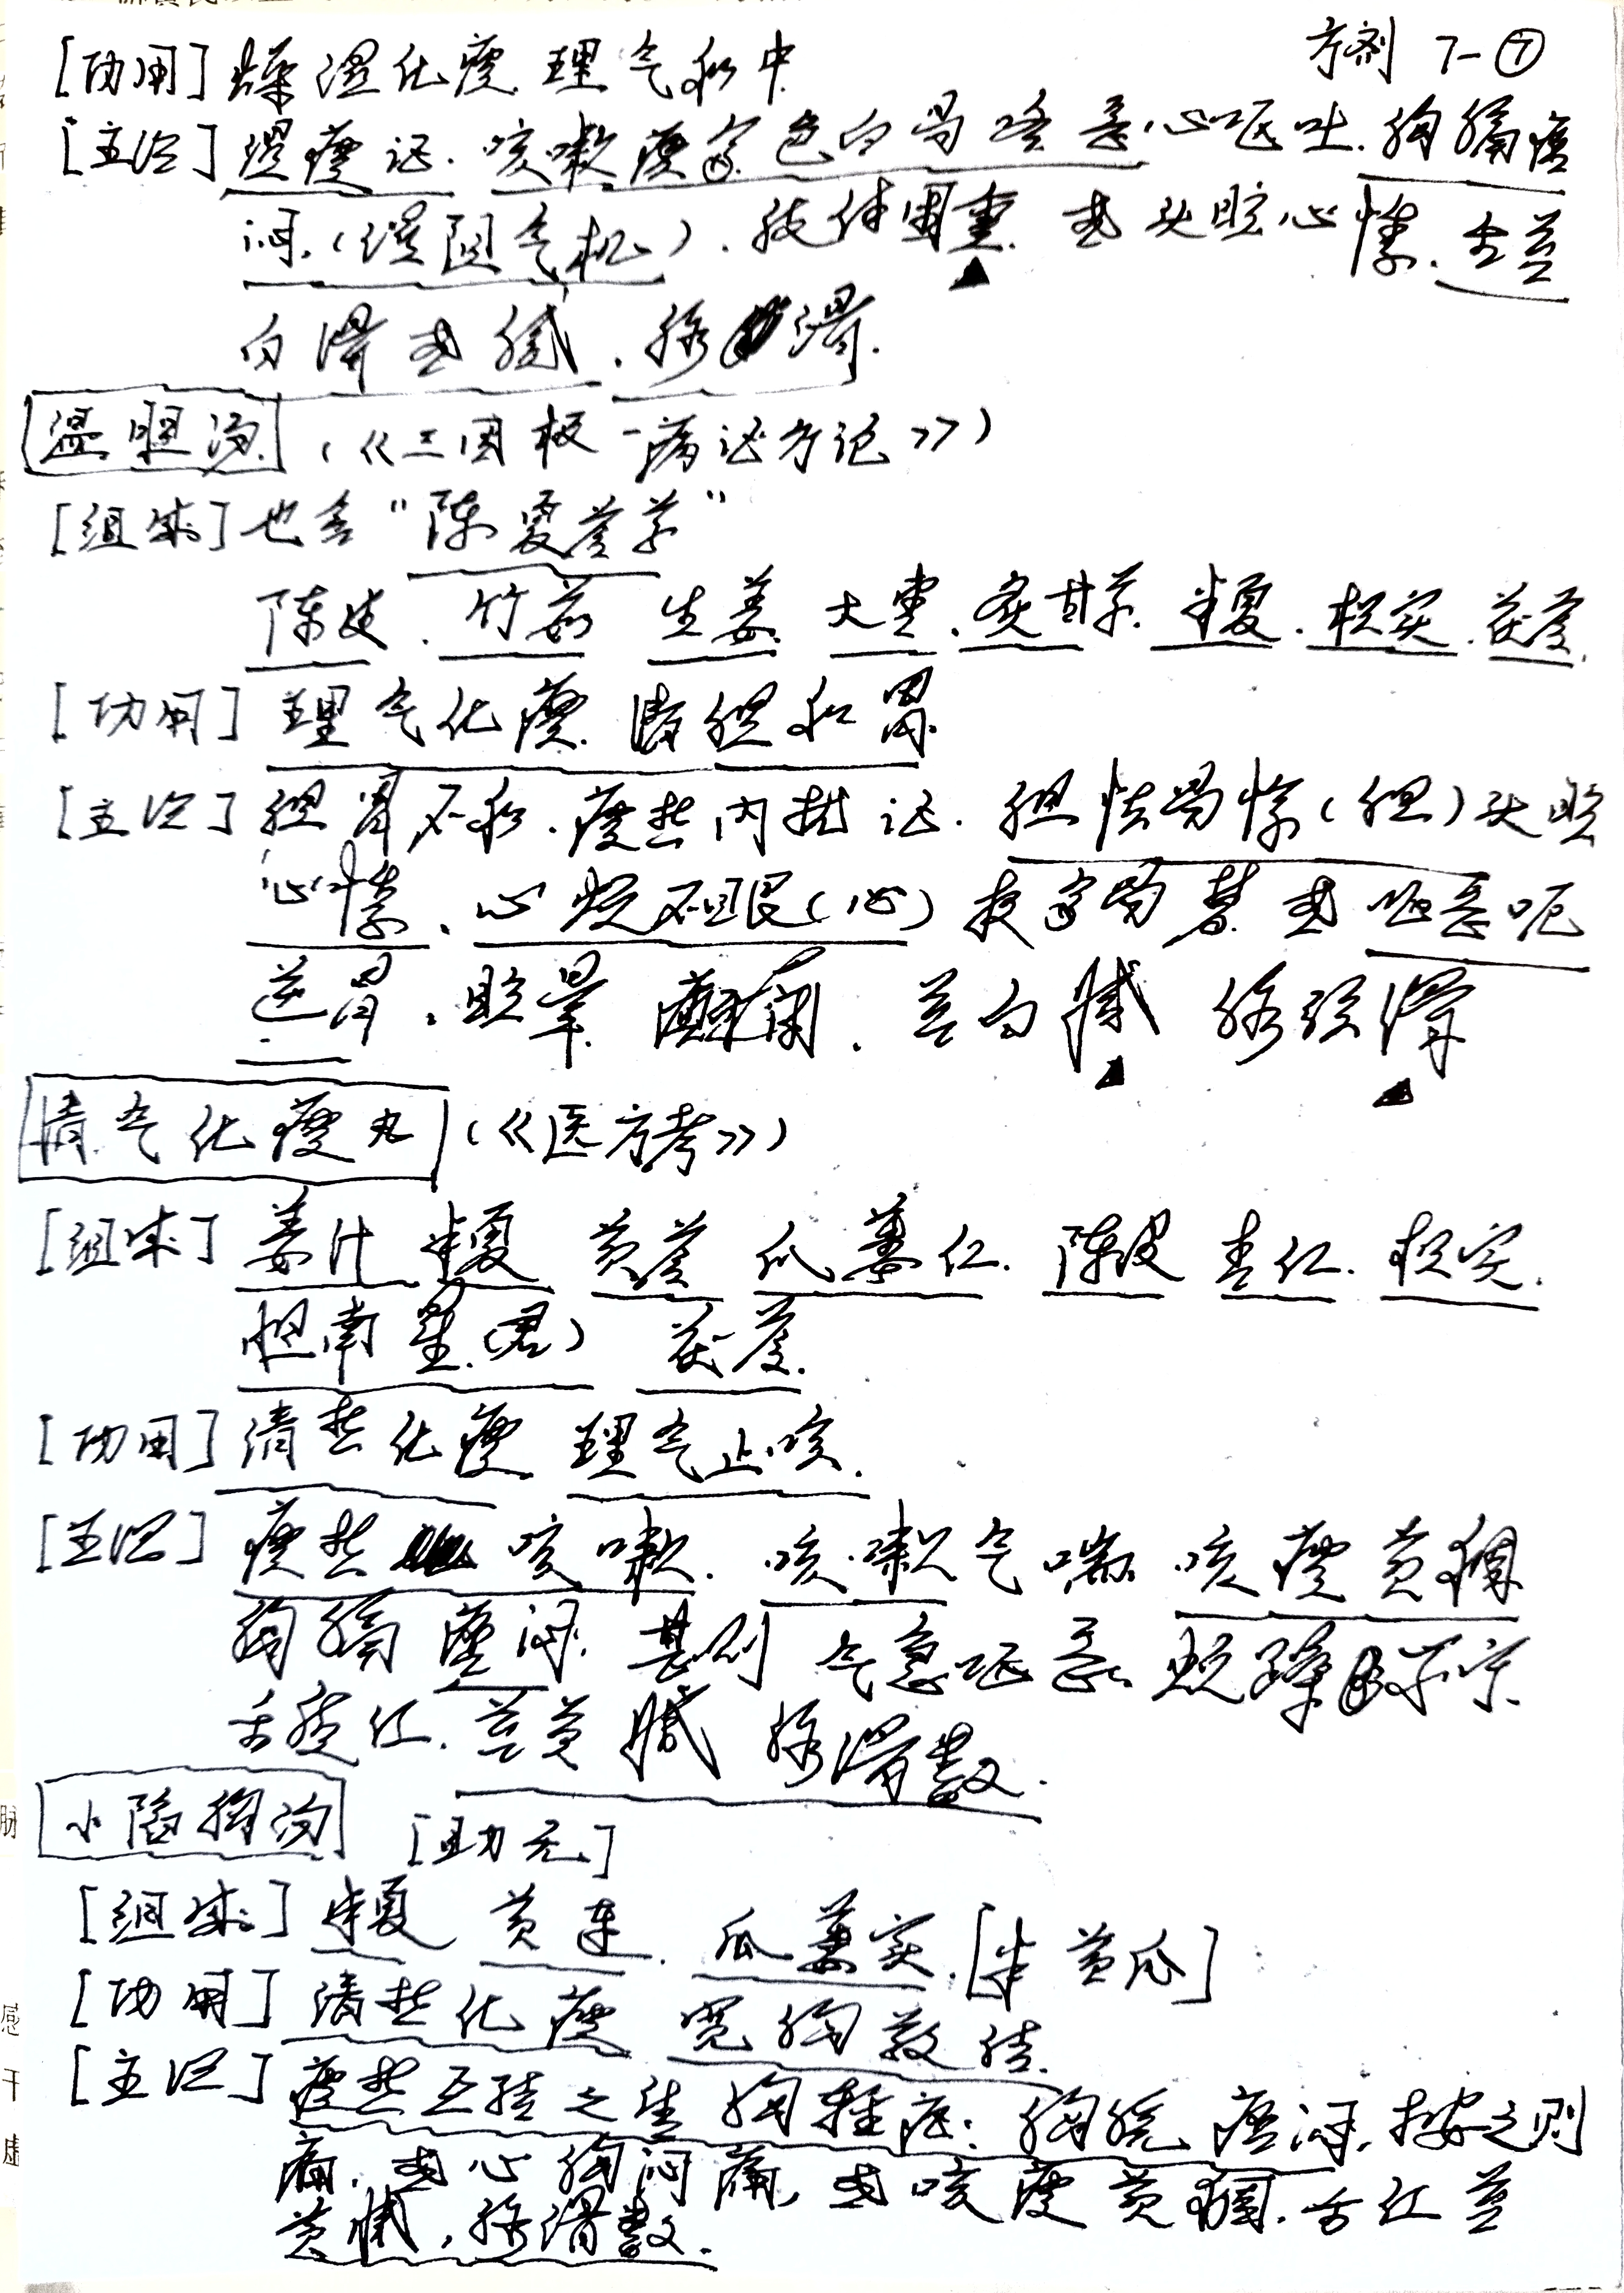 方剂 7-⑦
[功用] 燥湿化痰 理气和中
[主治] 湿痰证. 咳嗽痰多色白易咯 恶心呕吐. 胸膈痞
闷.(湿阻气机). 肢体困重. 或头眩心悸. 舌苔
白滑或腻. 脉滑.
温胆汤 (《三因极一病证方论》)
[组成] 也含"陈夏苓草"
陈皮. 竹茹 生姜. 大枣. 炙甘草. 半夏. 枳实. 茯苓.
[功用] 理气化痰. 清胆和胃
[主治] 胆胃不和. 痰热内扰证. 胆怯易惊(胆)头眩
心悸. 心烦不眠(心) 夜多易梦. 或呕恶呃
逆胃. 眩晕. 癫痫. 苔白腻 脉弦滑
清气化痰丸 (《医方考》)
[组成] 姜汁 半夏 黄芩 瓜蒌仁. 陈皮 杏仁. 枳实.
胆南星.(君) 茯苓.
[功用] 清热化痰 理气止咳.
[主治] 痰热咳嗽. 咳嗽气喘 咳痰黄稠
胸膈痞闷. 甚则气急呕恶
舌质红. 苔黄腻 脉滑数.
小陷胸汤
[组成] 半夏 黄连. 瓜蒌实. [半黄瓜]
[功用] 清热化痰 宽胸散结.
[主治] 痰热互结之 胸 : 胸脘痞闷. 按之则
痛. 或心胸闷痛, 或咳痰黄稠. 舌红苔
黄腻, 脉滑数.